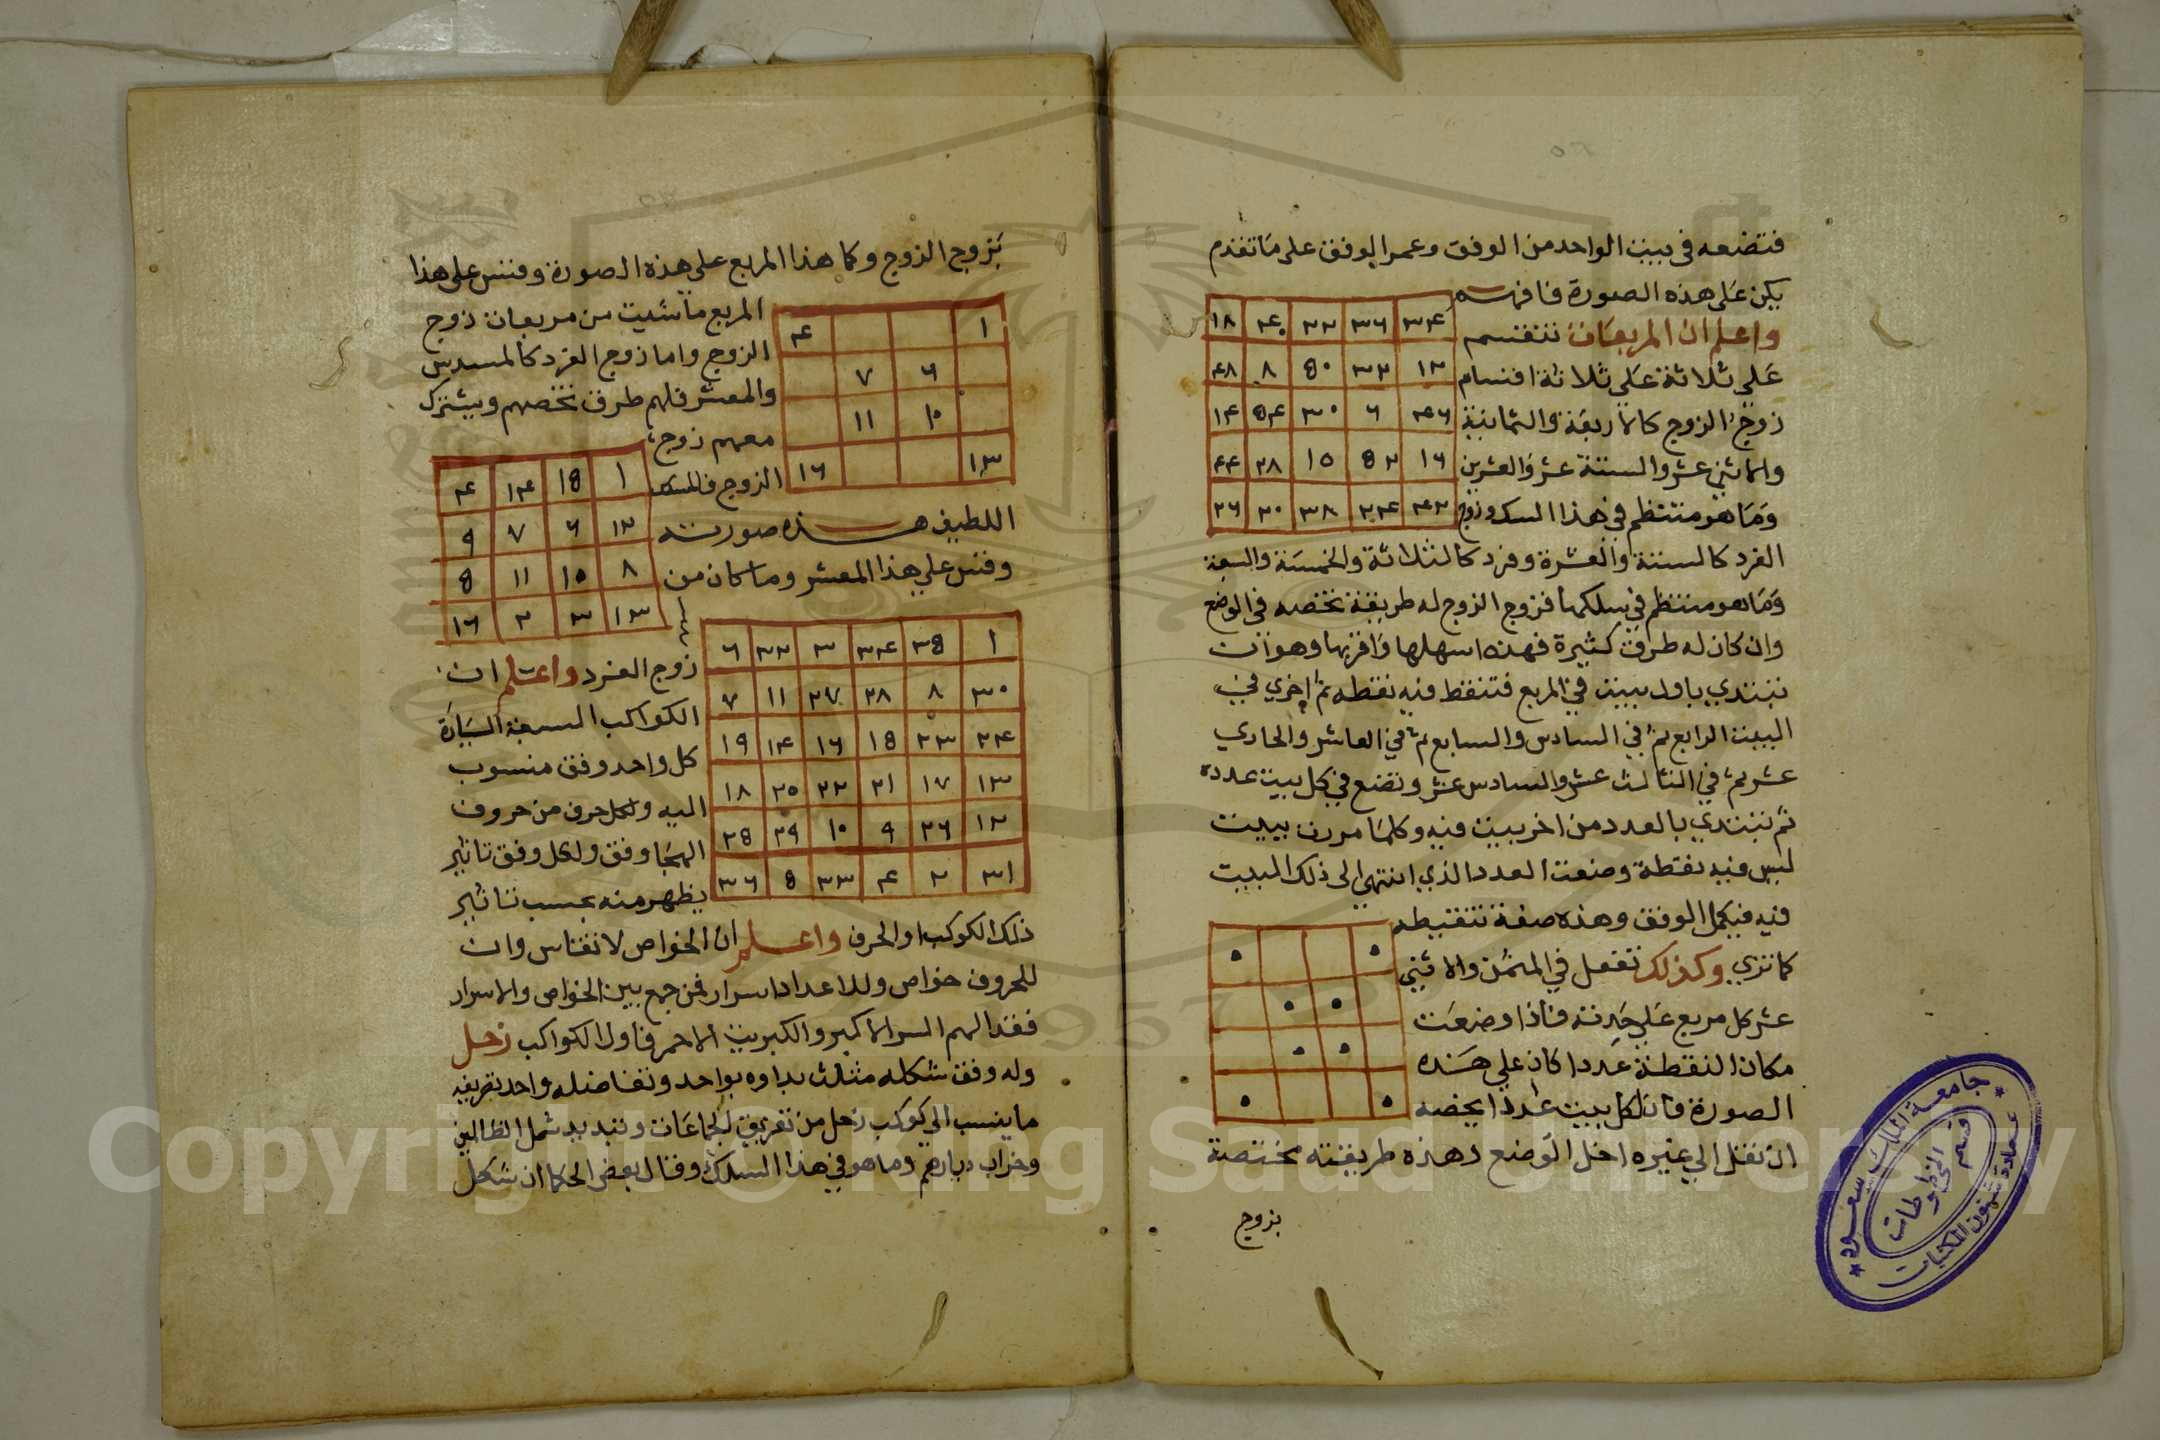 فتضعه في بيت الواحد من الوفق وعمر الوفق على ما تقدم
يكن على هذه الصورة فافهمه
٣٤ ٣٦ ٢٢ ٤٠ ١٨
واعلم ان المربعات تنقسم
على ثلاثة على ثلاثة اقسام
١٢ ٣٢ ٥٠ ٨ ٤٨
زوج الزوج كالاربعة والثمانية
٤٦ ٦ ٣٠ ٥٤ ١٤
والاثني عشر والستة عشر والعشرين
١٦ ٥٢ ١٠ ٢٨ ٤٤
وما هو منتظم في هذا السلك وزوج
٤٢ ٢٤ ٣٨ ٢٠ ٢٦
الفرد كالستة والعشرة وفرد كالثلاثة والخمسة والسبعة
وما هو منتظم في سلكها فزوج الزوج له طريقة تخصه في الوضع
وان كان له طرق كثيرة فهذه اسهلها واقربها وهو ان
تبتدي باول بيت في المربع فتنقط فيه نقطه ثم اخري في
البيت الرابع ثم في السادس والسابع ثم في العاشر والحادي
عشر ثم في الثالث عشر والسادس عشر وتضع في كل بيت عدده
ثم تبتدي بالعدد من اخر بيت فيه وكلما مررت ببيت
ليس فيه نقطة وضعت العدد الذي انتهي الى ذلك البيت
فيه فيكمل الوفق وهذه صفة تنقيطه
كما تري وكذلك تفعل في المثمن والاثني
عشر كل مربع على حدته فاذا وضعت
مكان النقطة عددا كان على هذه
الصورة فان لكل بيت عددا يخصه
ان نقل الي غيره اختل الوضع وهذه طريقته مختصة
بزوج
بزوج الزوج وكما هذا المربع على هذه الصورة وقس على هذا
المربع ما شيت من مربعات زوج
١ ٤
الزوج واما زوج الفرد كالمسدس
٦ ٧
والمعشر فلهم طرق تخصهم ويشترك
١٠ ١١
معهم زوج
١٣ ١٦
الزوج
١ ١٥ ١٤ ٤
اللطيف هذه صورته
١٢ ٦ ٧ ٩
وقس على هذا المعشر وما كان من
٨ ١٠ ١١ ٥
١٣ ٣ ٢ ١٦
١ ٣٥ ٣٤ ٣ ٣٢ ٦
زوج الفرد واعلم ان
٣٠ ٨ ٢٨ ٢٧ ١١ ٧
الكواكب السبعة السيارة
٢٤ ٢٣ ١٥ ١٦ ١٤ ١٩
كل واحد وفق منسوب
١٣ ١٧ ٢١ ٢٢ ٢٠ ١٨
اليه ولكل حرف من حروف
١٢ ٢٦ ٩ ١٠ ٢٩ ٢٥
الهجا وفق ولكل وفق تاثير
٣١ ٢ ٤ ٣٣ ٥ ٣٦
يظهر منه بحسب تاثير
ذلك الكوكب او الحرف واعلم ان الخواص لا تقاس وان
للحروف خواص وللاعداد اسرار فمن جمع بين الخواص والاسرار
فقد الهم السر الاكبر والكبريت الاحمر فاول الكواكب زحل
وله وفق شكله مثلث بداوه بواحد وتفاضله واحد
ما ينسب الي كوكب زحل من تفريق الجماعات وتبديد شمل الظالمين
وخراب ديارهم وما هو في هذا السلك وقال بعض الحكما ان شكل
جامعة الملك سعود
عمادة شؤون المكتبات
قسم المخطوطات
1957
Copyright © King Saud University